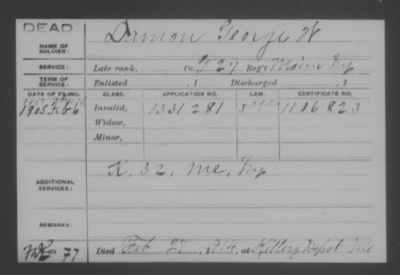 DEAD
NAME OF SOLDIER: Damon George W
SERVICE: Late rank, Co. G. 27 Reg't Maine Inf
TERM OF SERVICE: Enlisted , 1 Discharged , 1
DATE OF FILING. CLASS. APPLICATION NO. LAW. CERTIFICATE NO.
1905 Feb 6 Invalid, 1331281 1106823
Widow,
Minor,
ADDITIONAL SERVICES: K. 32, Me, Inf
REMARKS:
77 Died Feb 27, 1914, at Kittery Depot Me